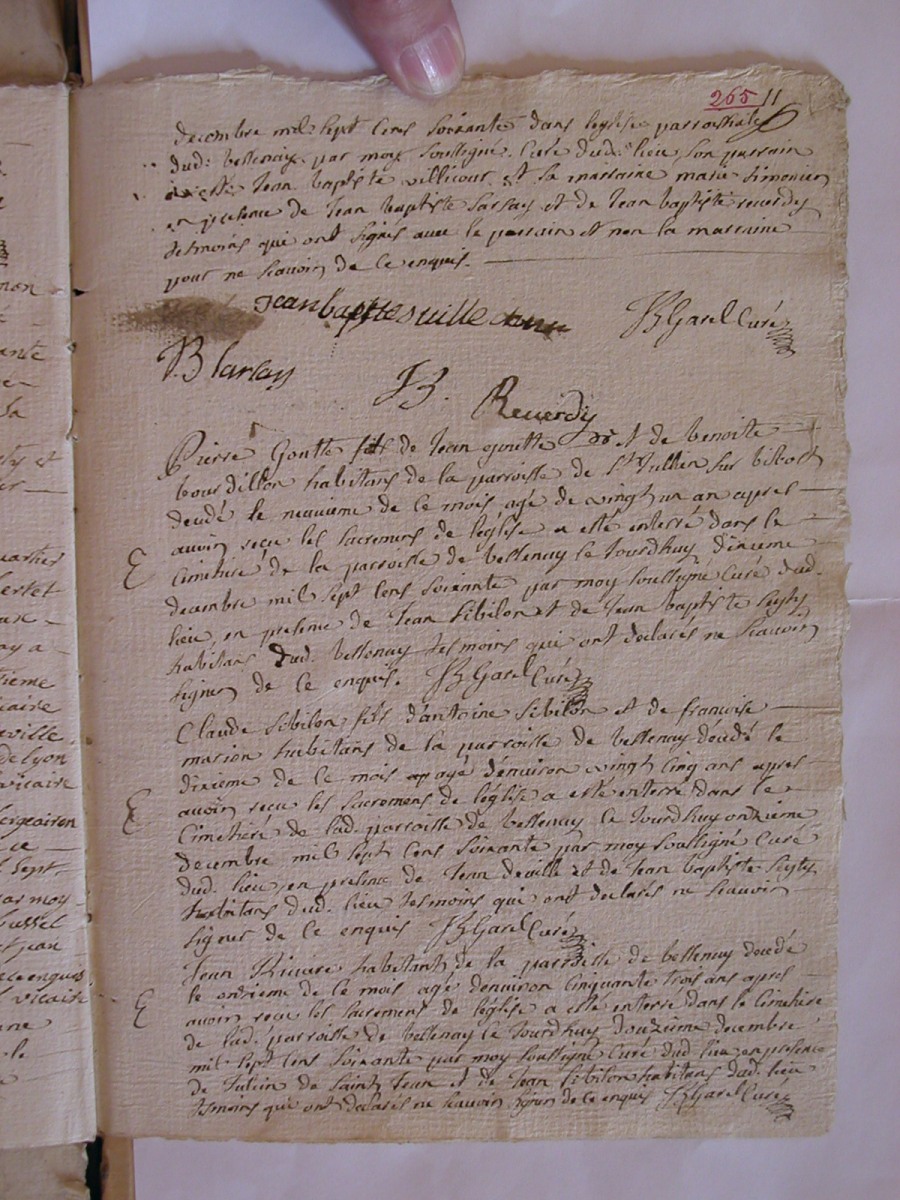 265 11
decembre mil sept cens soixante dans leglise parroissialle
dud. Vessenay par moy soussigné curé dud. lieu son parrain
a esté Jean baptiste villecour et sa marraine marie simonier
en presence de Jean baptiste sarsay et de Jean baptiste reverdy
tesmoins qui ont signés avec le parrain et non la marraine
pour ne scauoir de ce enquis.
Jean baptiste suille
JB Garel Curé
JB sarsay
JB. Reuerdy
Pierre Goutte fils de Jean goutte et de benoite
bourdillon habitans de la parroisse de St Jullien sur bibost
decedé le neuvieme de ce mois agé de vingt un an apres
avoir reçu les sacremens de léglise a esté enterré dans le
Cimetiere de la parroisse de Vessenay le Jourdhuy dixieme
decembre mil sept cens soixante par moy soussigné Curé dud.
lieu, en presence de Jean Sibilon et de Jean baptiste Seyty
habitans dud. Vessenay tesmoins qui ont declarés ne scauoir
signer de ce enquis. JB Garel Curé
Claude Sibilon fils d'antoine Sibilon et de francoise
marion habitans de la parroisse de Vessenay decedé le
dixieme de ce mois agé d'environ vingt cinq ans apres
avoir recu les sacremens de léglise a esté enterré dans le
Cimetiere de lad. parroisse de Vessenay le Jourdhuy onzieme
decembre mil sept cens soixante par moy soussigné Curé
dud. lieu en presence de Jean deville et de Jean baptiste Seyty
habitans dud. lieu tesmoins qui ont declarés ne scauoir
signer de ce enquis JB Garel Curé
Jean Riviere habitant de la parroisse de Vessenay decedé
le onzieme de ce mois agé denviron Cinquante trois ans apres
avoir recu les sacremens de léglise a esté enterré dans le Cimetiere
de lad. parroisse de Vessenay le Jourdhuy douzieme decembre
mil sept cens soixante par moy soussigné Curé dud lieu en presence
de Julien de Saint Jean et de Jean Sibilon habitans dud. lieu
tesmoins qui ont declarés ne scauoir signer de ce enquis JB Garel Curé